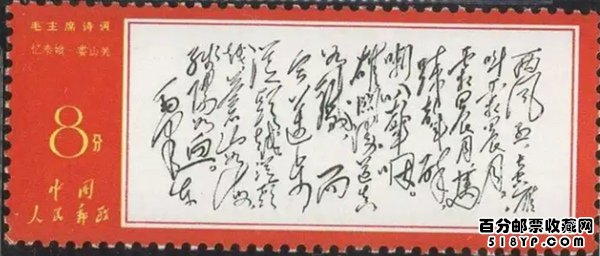 毛主席诗词
忆秦娥·娄山关
8分
中国
人民邮政
西风烈长空雁
叫霜晨月。
霜晨月,马
蹄声碎,
喇叭声咽。
雄关漫道真
如铁,而
今迈步
从头越,从头
越苍山如海
残阳如血。
毛泽东
百分邮票收藏网
518YP.com